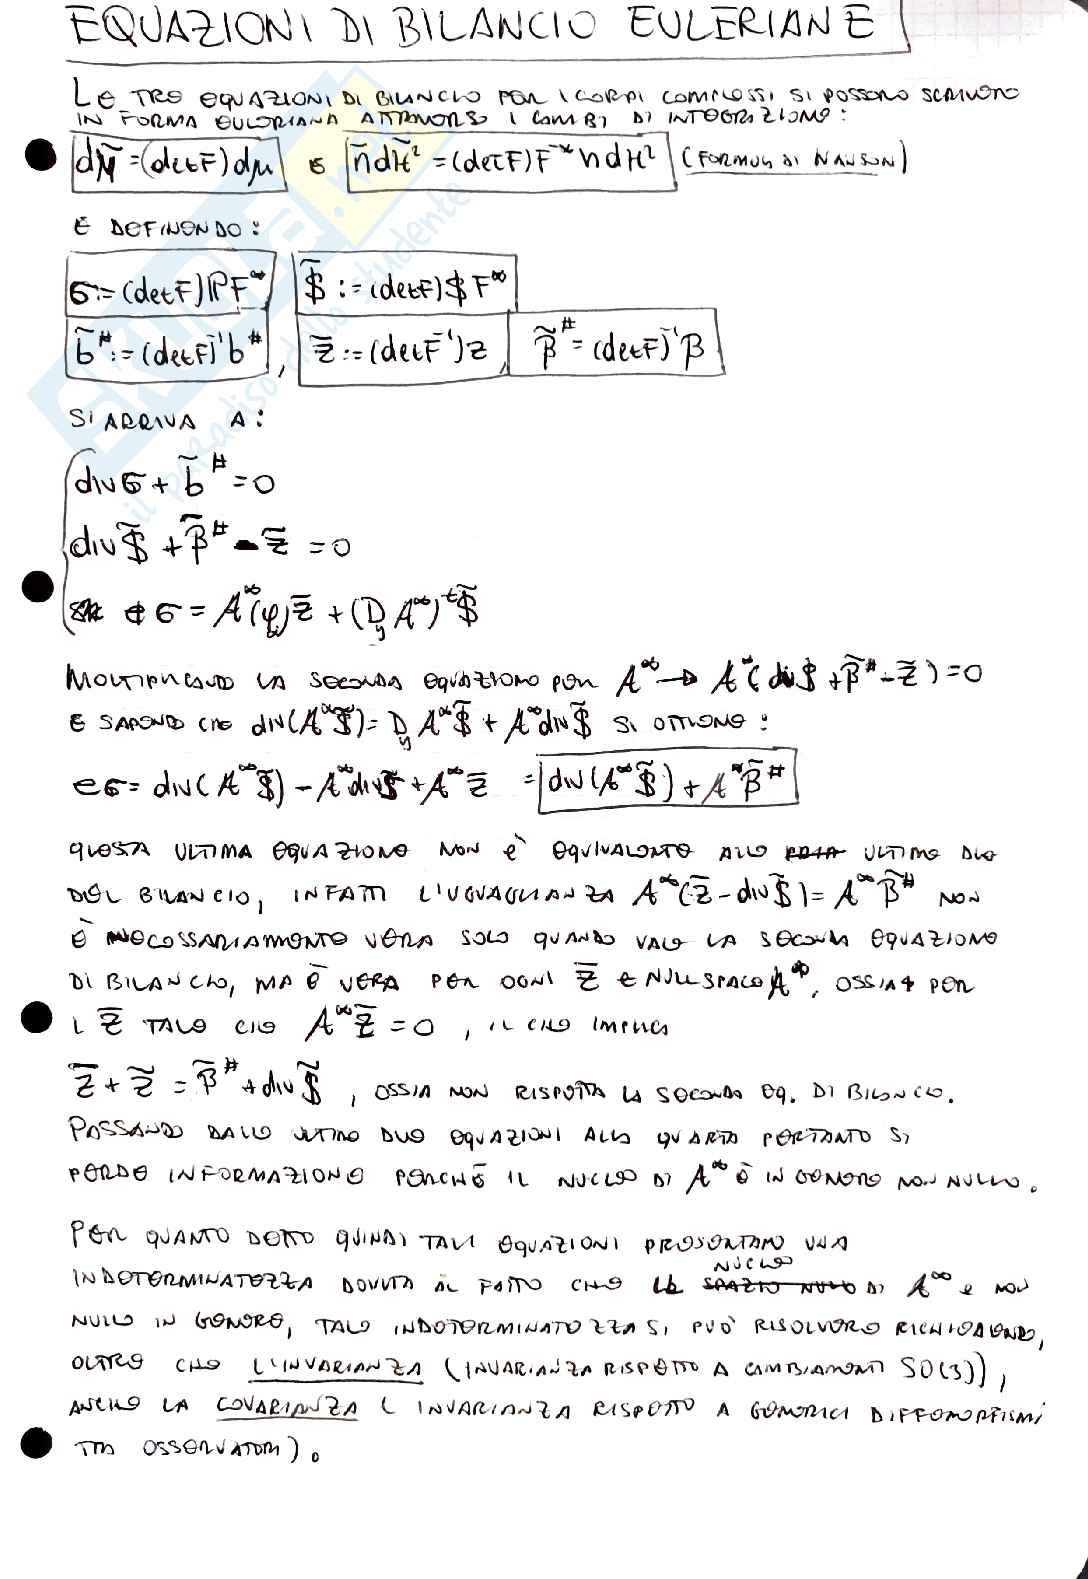 EQUAZIONI DI BILANCIO EULERIANE
LE TRE EQUAZIONI DI BILANCIO PER I CORPI COMPLESSI SI POSSONO SCRIVERE
IN FORMA EULERIANA ATTRAVERSO I CAMBI DI INTEGRAZIONE:
dμ̃ = (det F) dμ E ñ dH̃² = (det F) F⁻* n dH² (FORMULA DI NANSON)
E DEFINENDO:
σ := (det F) ℙ F* , S̃ := (det F) S F*
b̃^# := (det F)⁻¹ b^# , z̃ := (det F⁻¹) z , β̃^# = (det F)⁻¹ β
SI ARRIVA A:
div σ + b̃^# = 0
div S̃ + β̃^# - z̃ = 0
e σ = A*(φ) z̃ + (D_y A*)^t S̃
MOLTIPLICANDO LA SECONDA EQUAZIONE PER A* → A*(div S̃ + β̃^# - z̃) = 0
E SAPENDO CHE div(A* S̃) = D_y A* S̃ + A* div S̃ SI OTTIENE:
e σ = div(A* S̃) - A* div S̃ + A* z̃ = div(A* S̃) + A* β̃^#
QUESTA ULTIMA EQUAZIONE NON È EQUIVALENTE ALLE ULTIME DUE
DEL BILANCIO, INFATTI L'UGUAGLIANZA A*(z̃ - div S̃) = A* β̃^# NON
È NECESSARIAMENTE VERA SOLO QUANDO VALE LA SECONDA EQUAZIONE
DI BILANCIO, MA È VERA PER OGNI z̅ ∈ NULLSPACE A*, OSSIA PER
I z̅ TALE CHE A* z̅ = 0 , IL CHE IMPLICA
z̅ + z̃ = β̃^# + div S̃ , OSSIA NON RISPETTA LA SECONDA EQ. DI BILANCIO.
PASSANDO DALLE ULTIME DUE EQUAZIONI ALLA QUARTA PERTANTO SI
PERDE INFORMAZIONE PERCHÉ IL NUCLEO DI A* È IN GENERE NON NULLO.
PER QUANTO DETTO QUINDI TALI EQUAZIONI PRESENTANO UNA
INDETERMINATEZZA DOVUTA AL FATTO CHE NUCLEO DI A* È NON
NULLO IN GENERE, TALE INDETERMINATEZZA SI PUÒ RISOLVERE RICHIEDENDO,
OLTRE CHE L'INVARIANZA (INVARIANZA RISPETTO A CAMBIAMENTI SO(3)),
ANCHE LA COVARIANZA (INVARIANZA RISPETTO A GENERICI DIFFEOMORFISMI
TRA OSSERVATORI).
SKUOLA.net
il paradiso dello studente